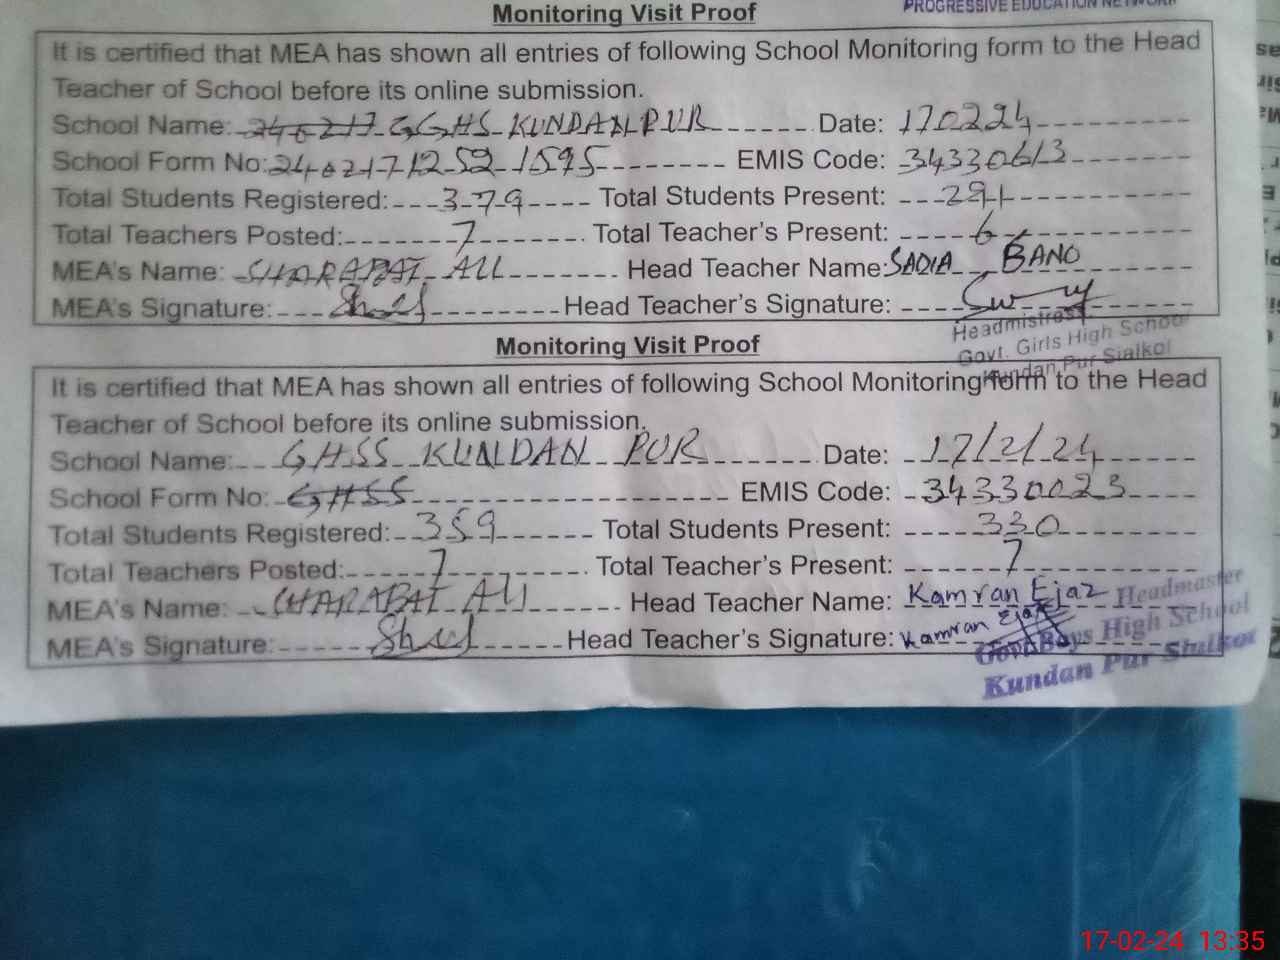 PROGRESSIVE EDUCATION NETWORK
Monitoring Visit Proof
It is certified that MEA has shown all entries of following School Monitoring form to the Head
Teacher of School before its online submission.
School Name: 240217 GGHS KUNDANPUR Date: 170224
School Form No: 240217 1252 1595 EMIS Code: 34330613
Total Students Registered: 379 Total Students Present: 291
Total Teachers Posted: 7 Total Teacher's Present: 6
MEA's Name: SHARAFAT ALI Head Teacher Name: SADIA BANO
MEA's Signature: Head Teacher's Signature:
Headmistress
Govt. Girls High School
Kundan Pur Sialkot
Monitoring Visit Proof
It is certified that MEA has shown all entries of following School Monitoring form to the Head
Teacher of School before its online submission.
School Name: GHSS KUNDAN PUR Date: 17/2/24
School Form No: GHSS EMIS Code: 34330023
Total Students Registered: 359 Total Students Present: 330
Total Teachers Posted: 7 Total Teacher's Present: 7
MEA's Name: SHARAFAT ALI Head Teacher Name: Kamran Ejaz
MEA's Signature: Head Teacher's Signature: Kamran Ejaz
Headmaster
Govt. Boys High School
Kundan Pur Sialkot
17-02-24 13:35